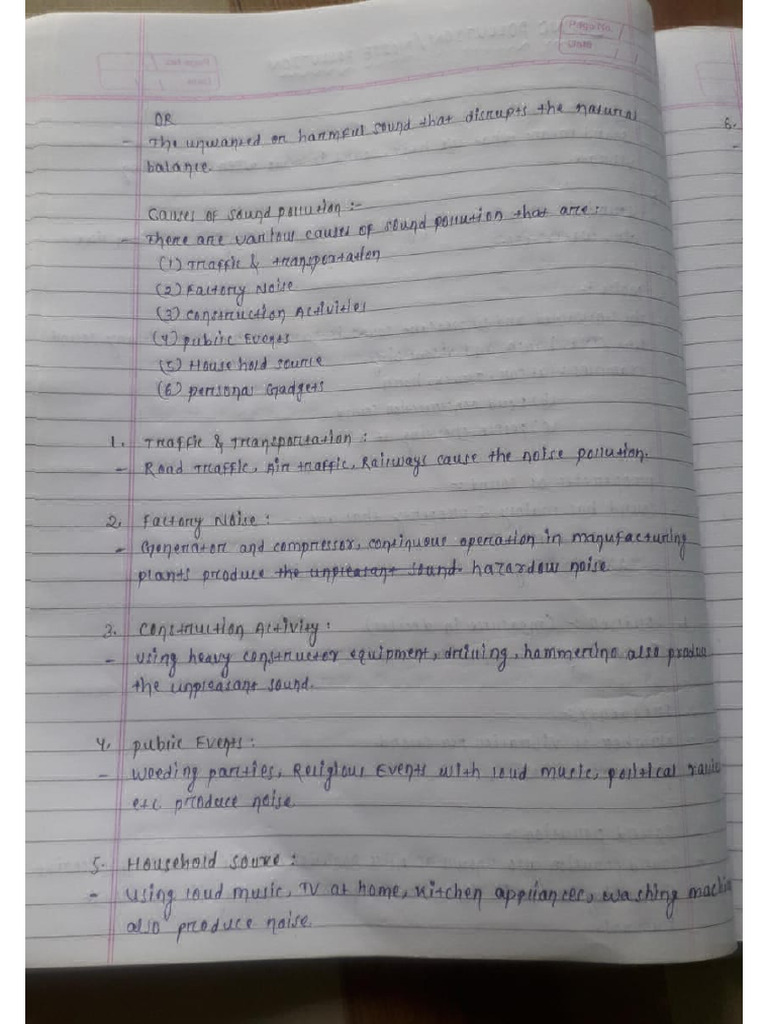 OR
- The unwanted or harmful sound that disrupts the natural
balance.
Causes of sound pollution :-
- There are various causes of sound pollution that are :
(1) Traffic & transportation
(2) Factory Noise
(3) construction Activities
(4) public Events
(5) House hold source
(6) personal Gadgets
1. Traffic & Transportation :
- Road Traffic, Air traffic, Railways cause the noise pollution.
2. Factory Noise :
- Generator and compressor, continuous operation in manufacturing
plants produce the unpleasant sound. hazardous noise.
3. Construction Activity :
- using heavy constructor equipment, drilling, hammering also produce
the unpleasant sound.
4. public Events :
- Weeding parties, Religious Events with loud music, political
etc. produce noise
5. Household source :
- using loud music, TV at home, kitchen appliances, washing
also produce noise.
8.
-